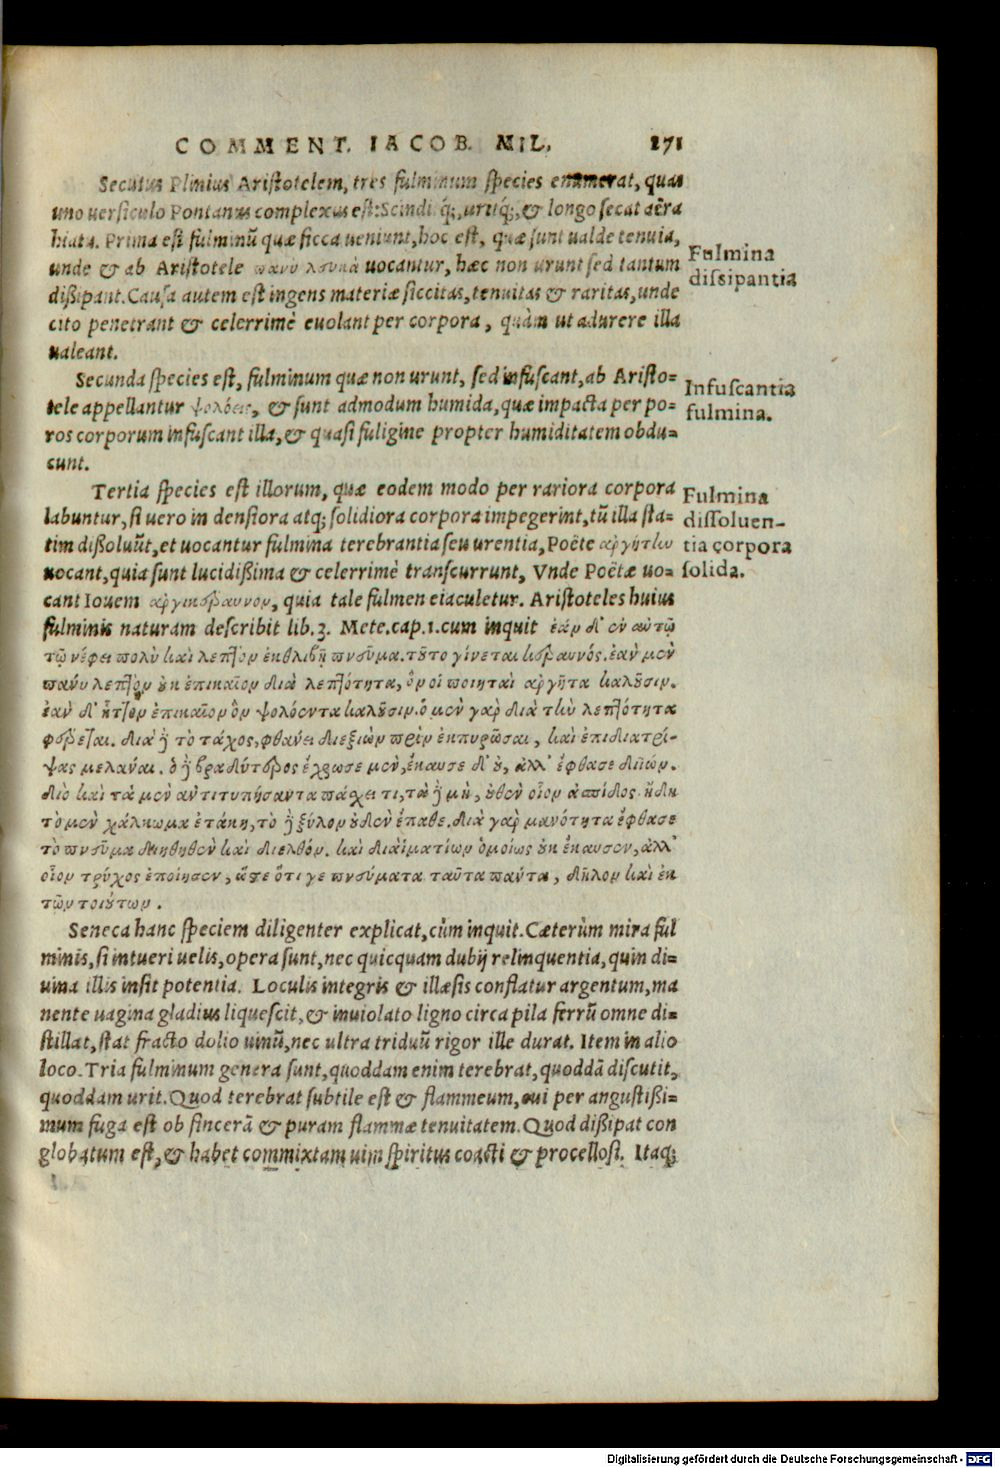 COMMENT. IACOB. MIL. 271
Secutus Plinius Aristotelem, tres fulminum species enumerat, quas
uno uersiculo Pontanus complexus est: Scinditq́;, uritq́;, & longo secat aëra
hiatu. Prima est fulminũ quæ sicca ueniunt, hoc est, quæ sunt ualde tenuia,
unde & ab Aristotele πανυ uocantur, hæc non urunt sed tantum
dißipant. Causa autem est ingens materiæ siccitas, tenuitas & raritas, unde
cito penetrant & celerrimè euolant per corpora, quàm ut adurere illa
ualeant.
Fulmina
dissipantia
Secunda species est, fulminum quæ non urunt, sed infuscant, ab Aristo=
tele appellantur ψολόεις, & sunt admodum humida, quæ impacta per po=
ros corporum infuscant illa, & quasi fuligine propter humiditatem obdu=
cunt.
Infuscantia
fulmina.
Tertia species est illorum, quæ eodem modo per rariora corpora
labuntur, si uero in densiora atq; solidiora corpora impegerint, tũ illa sta=
tim dißoluũt, et uocantur fulmina terebrantia seu urentia, Poëte ἀργητὼ
uocant, quia sunt lucidißima & celerrimè transcurrunt, Vnde Poëtæ uo=
cant Iouem ἀργικέραυνον, quia tale fulmen eiaculetur. Aristoteles huius
fulminis naturam describit lib. 3. Mete. cap. 1. cum inquit ἐὰν δ' ἐν αὐτῷ
τῷ νέφει πολὺ καὶ λεπτὸν ἐκθλιβῇ πνεῦμα. τοῦτο γίνεται κεραυνός. ἐὰν μὲν
πάνυ λεπτὸν οὐκ ἐπικαῖον διὰ λεπτότητα, ὃν οἱ ποιηταὶ ἀργῆτα καλοῦσιν.
ἐὰν δ' ἧττον ἐπικαῖον ὃν ψολόεντα καλοῦσιν. ὁ μὲν γὰρ διὰ τὴν λεπτότητα
φέρεται. διὰ δὲ τὸ τάχος, φθάνει διεξιὼν πρὶν ἐκπυρῶσαι, καὶ ἐπιδιατρί-
ψας μελᾶναι. ὁ δὲ βραδύτερος ἔχρωσε μὲν, ἔκαυσε δ' οὐ, ἀλλ' ἔφθασε διιών.
διὸ καὶ τὰ μὲν ἀντιτυπήσαντα πάσχει τι, τὰ δὲ μὴ, οὐθὲν οἷον ἀσπίδος ἤδη
τὸ μὲν χάλκωμα ἐτάκη, τὸ δὲ ξύλον οὐδὲν ἔπαθε. διὰ γὰρ μανότητα ἔφθασε
τὸ πνεῦμα διηθηθὲν καὶ διελθόν. καὶ διὰ ἱματίων ὁμοίως οὐκ ἔκαυσεν, ἀλλ'
οἷον τρύχος ἐποίησεν, ὥστε ὅτι γε πνεύματα ταῦτα πάντα, δῆλον καὶ ἐκ
τῶν τοιούτων.
Fulmina
dissoluen-
tia corpora
solida.
Seneca hanc speciem diligenter explicat, cùm inquit. Cæterùm mira ful
minis, si intueri uelis, opera sunt, nec quicquam dubij relinquentia, quin di=
uina illis insit potentia. Loculis integris & illæsis conflatur argentum, ma
nente uagina gladius liquescit, & inuiolato ligno circa pila ferrũ omne di=
stillat, stat fracto dolio uinũ, nec ultra triduũ rigor ille durat. Item in alio
loco. Tria fulminum genera sunt, quoddam enim terebrat, quoddã discutit,
quoddam urit. Quod terebrat subtile est & flammeum, cui per angustißi=
mum fuga est ob sincerã & puram flammæ tenuitatem. Quod dißipat con
globatum est, & habet commixtam uim spiritus coacti & procellosi. Itaq;
Digitalisierung gefördert durch die Deutsche Forschungsgemeinschaft - DFG